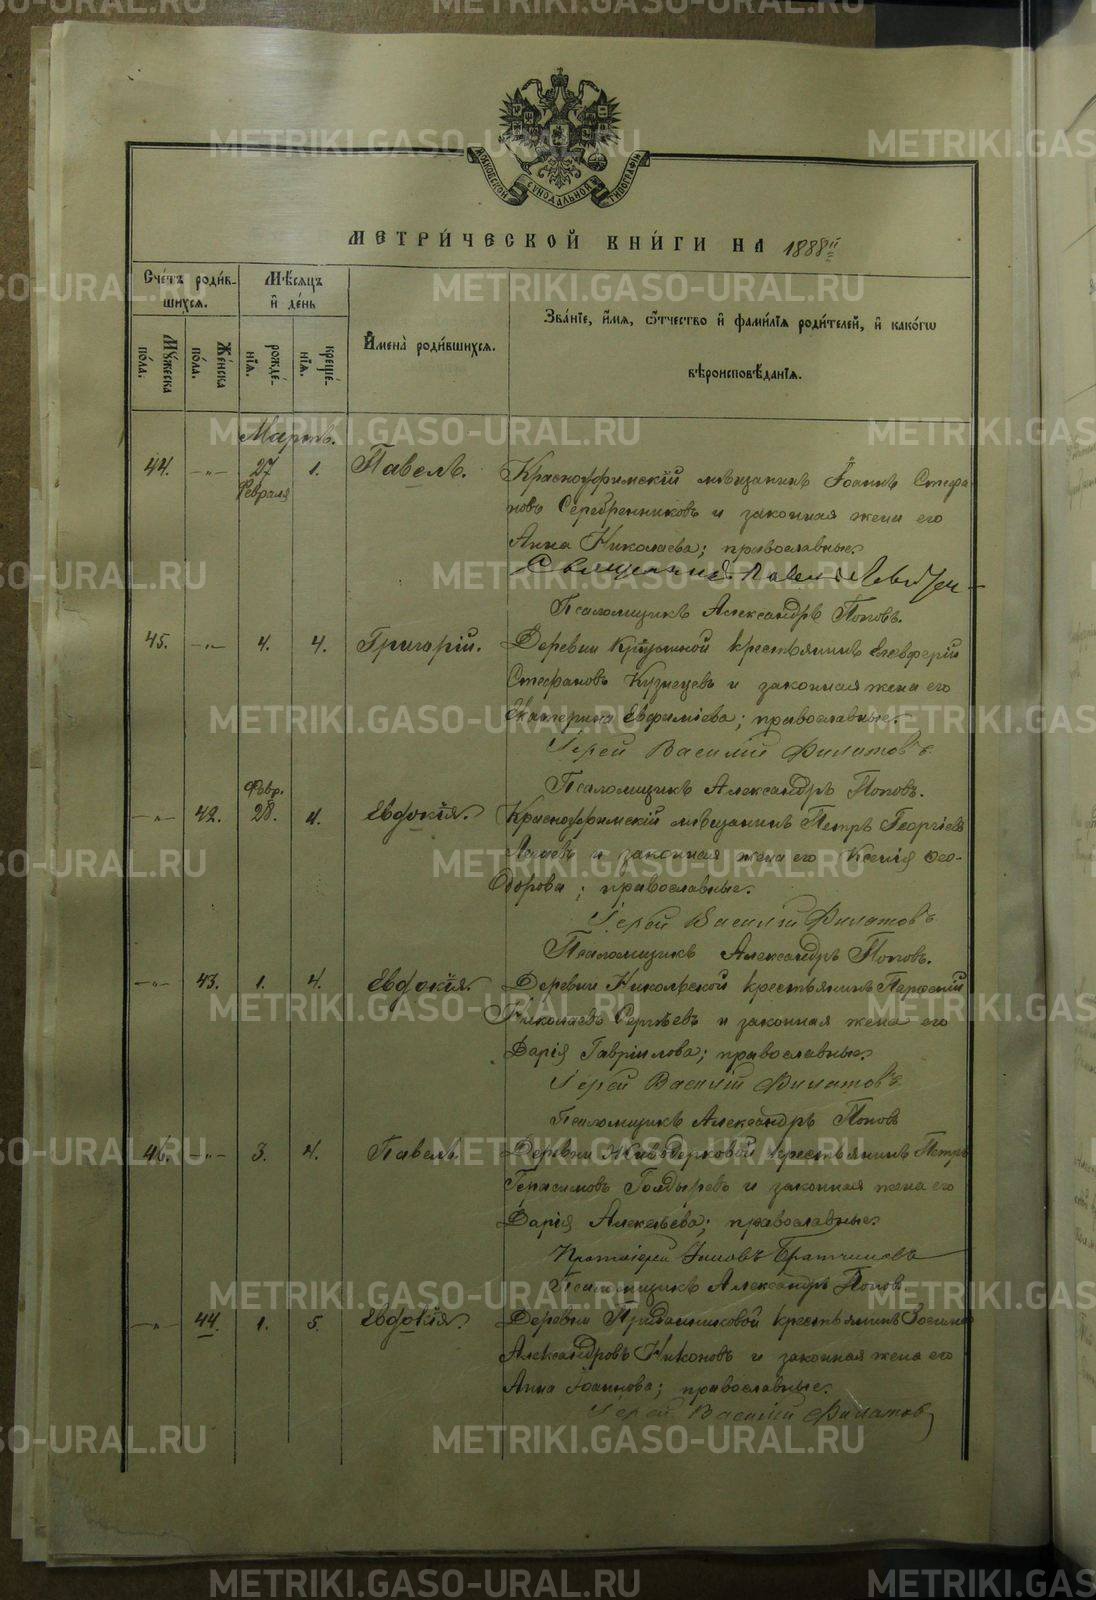 METRIKI.GASO-URAL.RU
МОСКОВСКОЙ СѴНОДАЛЬНОЙ ТИПОГРАФІИ
МЕТРИ́ЧЕСКОЙ КНИ́ГИ НА 1888й
Сче́тъ роди́в-
шихся.
Мꙋжеска по́ла.
Же́нска по́ла.
Мѣ́сяцъ
и҆ де́нь
рожде́-
нїя.
креще́-
нїя.
И҆мена̀ роди́вшихся.
Зва́нїе, и҆́мя, ѻ҆́тчество и҆ фами́лїя роди́телей, и҆ како́гѡ
вѣроисповѣ́данїя.
Мартъ.
44. —„— 27 Февраля 1. Павелъ. Красноуфимскій мѣщанинъ Іоаннъ Стефа-
новъ Серебренниковъ и законная жена его
Анна Николаева; православные.
Священникъ Павелъ
Псаломщикъ Александръ Поповъ.
45. —„— 4. 4. Григорій. Деревни крестьянинъ Елевферій
Стефановъ Кузнецовъ и законная жена его
Екатерина Евфиміева; православные.
Іерей Василій Филатовъ
Псаломщикъ Александръ Поповъ.
—„— 42. Февр. 28. 4. Евдокія. Красноуфимскій мѣщанинъ Петръ Георгіевъ
и законная жена его Ксенія Ѳео-
дорова; православные.
Іерей Василій Филатовъ
Псаломщикъ Александръ Поповъ.
—„— 43. 1. 4. Евдокія. Деревни крестьянинъ
Николаевъ Сергѣевъ и законная жена его
Дарія Гавріилова; православные.
Іерей Василій Филатовъ
Псаломщикъ Александръ Поповъ
46. —„— 3. 4. Павелъ. Деревни крестьянинъ Петръ
Герасимовъ Голдыревъ и законная жена его
Дарія Алексѣева; православные.
Протоіерей Братчиковъ
Псаломщикъ Александръ Поповъ.
—„— 44. 1. 5. Евдокія. Деревни крестьянинъ Зосима
Александровъ Никоновъ и законная жена его
Анна Іоаннова; православные.
Іерей Василій Филатовъ